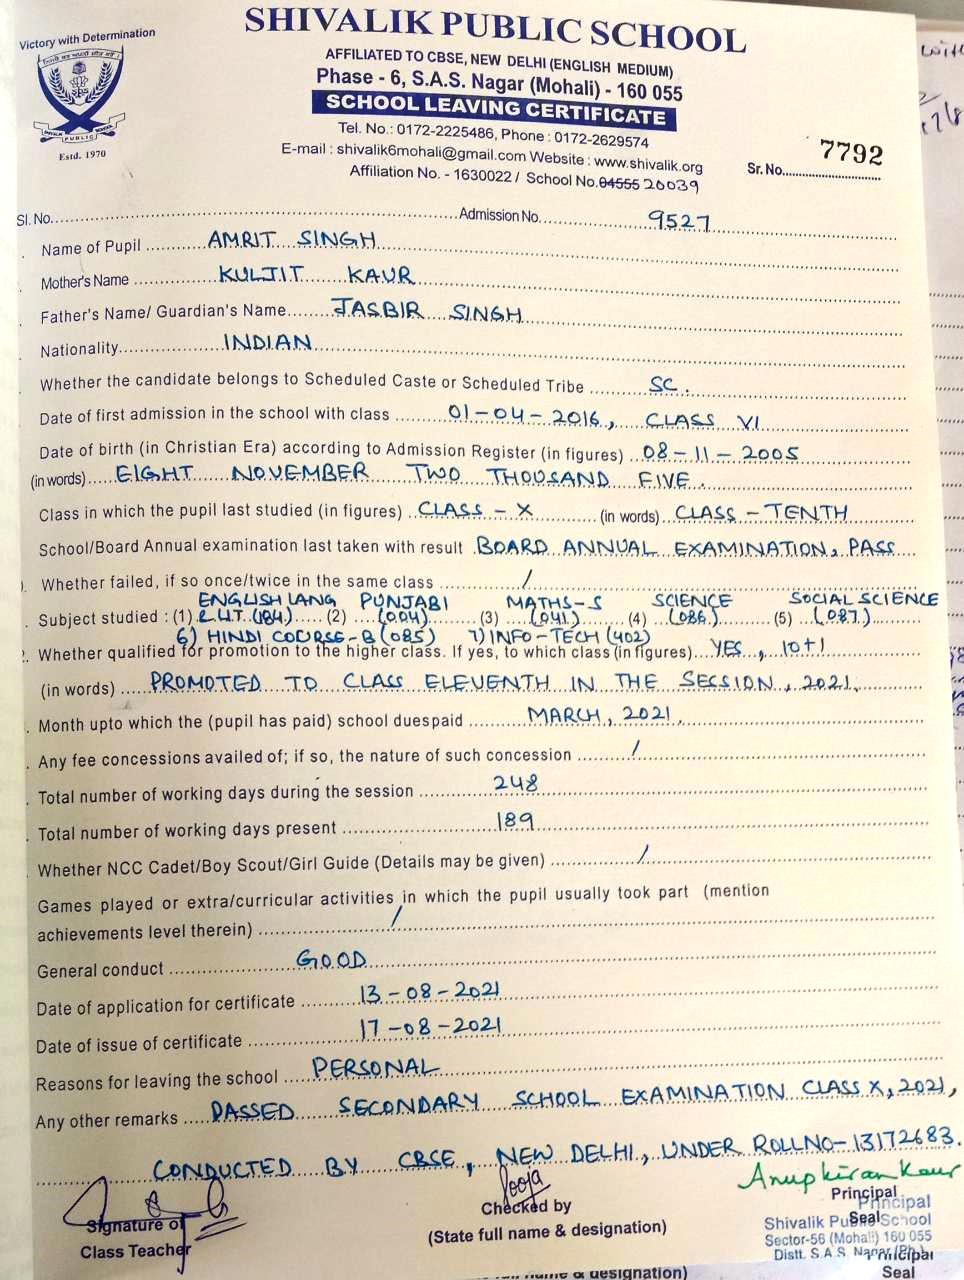 SHIVALIK PUBLIC SCHOOL
Victory with Determination
AFFILIATED TO CBSE, NEW DELHI (ENGLISH MEDIUM)
Phase - 6, S.A.S. Nagar (Mohali) - 160 055
SCHOOL LEAVING CERTIFICATE
SHIVALIK PUBLIC SCHOOL
Estd. 1970
Tel. No.: 0172-2225486, Phone : 0172-2629574
E-mail : shivalik6mohali@gmail.com Website : www.shivalik.org
Affiliation No. - 1630022 / School No.04555 20039
Sr.No. 7792
Sl. No. Admission No. 9527
Name of Pupil AMRIT SINGH
Mother's Name KULJIT KAUR
Father's Name/ Guardian's Name JASBIR SINGH
Nationality INDIAN
Whether the candidate belongs to Scheduled Caste or Scheduled Tribe SC.
Date of first admission in the school with class 01-04-2016, CLASS VI
Date of birth (in Christian Era) according to Admission Register (in figures) 08-11-2005
(in words) EIGHT NOVEMBER TWO THOUSAND FIVE.
Class in which the pupil last studied (in figures) CLASS-X (in words) CLASS-TENTH
School/Board Annual examination last taken with result BOARD ANNUAL EXAMINATION, PASS
Whether failed, if so once/twice in the same class /
ENGLISH LANG PUNJABI MATHS-S SCIENCE SOCIAL SCIENCE
Subject studied : (1) & LIT (184) (2) (004) (3) (041) (4) (086) (5) (087)
6) HINDI COURSE-B (085) 7) INFO-TECH (402)
Whether qualified for promotion to the higher class. If yes, to which class (in figures) YES, 10+1
(in words) PROMOTED TO CLASS ELEVENTH IN THE SESSION, 2021.
Month upto which the (pupil has paid) school duespaid MARCH, 2021.
Any fee concessions availed of; if so, the nature of such concession /
Total number of working days during the session 248
Total number of working days present 189
Whether NCC Cadet/Boy Scout/Girl Guide (Details may be given) /
Games played or extra/curricular activities in which the pupil usually took part (mention
achievements level therein) /
General conduct GOOD
Date of application for certificate 13-08-2021
Date of issue of certificate 17-08-2021
Reasons for leaving the school PERSONAL
Any other remarks PASSED SECONDARY SCHOOL EXAMINATION CLASS X, 2021,
CONDUCTED BY CBSE, NEW DELHI, UNDER ROLLNO-13172683.
Pooja
Anupkiran Kaur
Signature of
Class Teacher
Checked by
(State full name & designation)
Principal
Seal
Principal
Shivalik Public School
Sector-56 (Mohali) 160 055
Distt. S.A.S. Nagar (Pb.)
Principal
Seal
full name & designation)